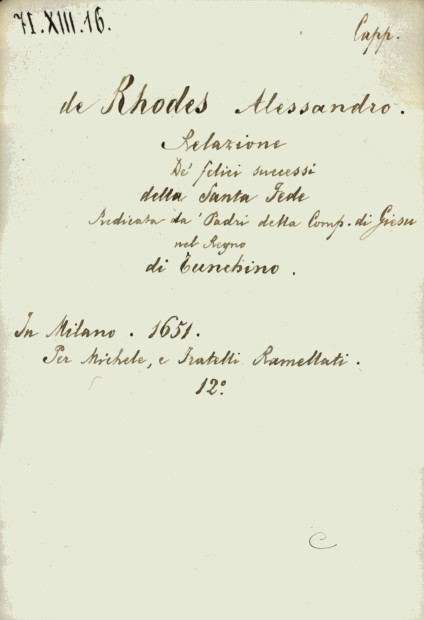 71.XIII.16.
Capp.
de Rhodes Alessandro.
Relazione
De' felici successi
della Santa Fede
Predicata da' Padri della Comp. di Giesu
nel Regno
di Tunchino.
In Milano. 1651.
Per Michele, e Fratelli Ramellati.
12°.
C